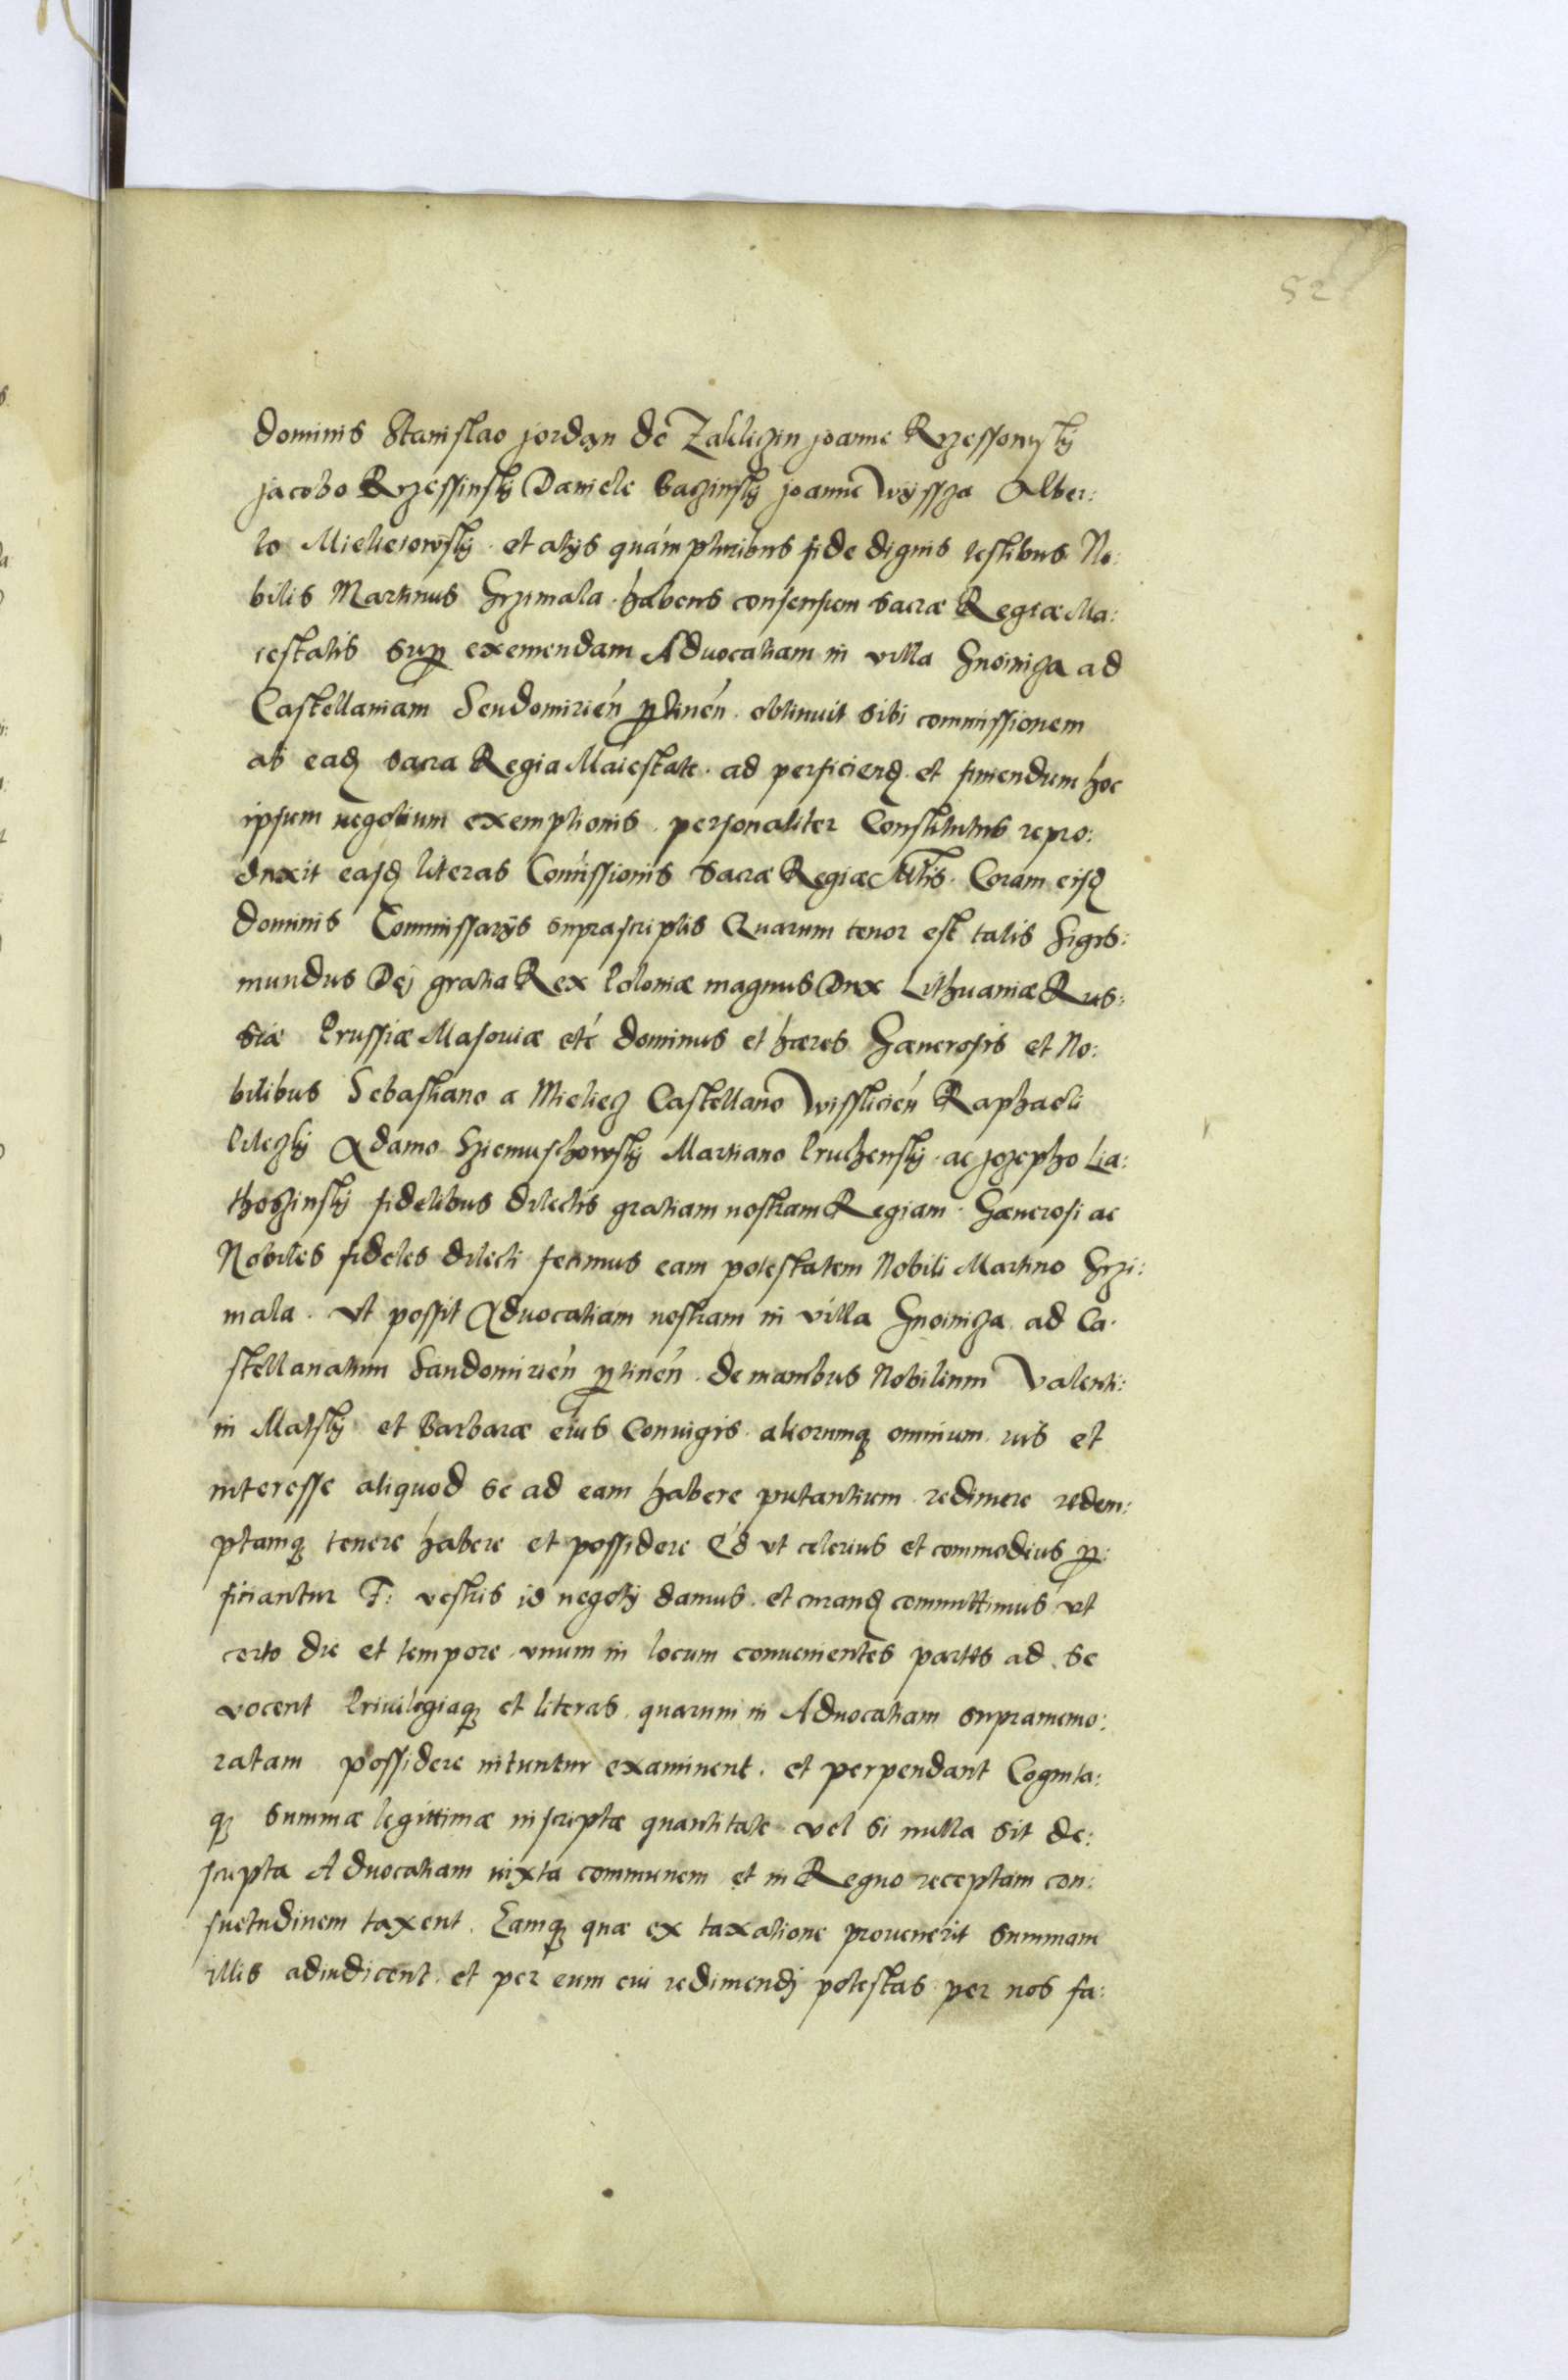 52
dominis Stanislao Jordan de Zakliczin Joanne Rzessowsky
Jacobo Rzessinsky Daniele Baczinsky Joanne Wyssga Alber:
to Mieliesowsky et alys quám pluribus fide dignis testibus No:
bilis Martinus Grzimala habens consensum sacræ Regiæ Ma:
iestatis sup exemendam Aduocatiam in villa Gnoiniza ad
Castellaniam Sendomirień ptineń obtinuit sibi commissionem
ab eadȝ sacra Regia Maiestate ad perficiendȝ et finiendum hoc
ipsum negotium exemptionis personaliter Constitutus repro:
duxit easdȝ literas Comissionis sacræ Regiæ Mtis Coram eisdȝ
dominis Commissarys suprascriptis Quarum tenor est talis Sigis:
mundus Dej gratia Rex Poloniæ magnus Dux Lithuaniæ Rus:
siæ Prussiæ Masouiæ etć dominus et hæres Gænerosis et No:
bilibus Sebastiano a Mieliecz Castellano Wisslicień Raphaeli
Adamo Martiano ac Jozepho Lia:
thoszinsky fidelibus dilectis gratiam nostram Regiam Gænerosi ac
Nobiles fideles dilecti fecimus eam potestatem Nobili Martino Grzi:
mala vt possit Aduocatiam nostram in villa Gnoiniza ad Ca:
stellanatum Sandomirień ptineń de manibus Nobilium Valenti:
ni Matsky et Barbaræ eius Coniugis aliorumqȝ omnium ius et
interesse aliquod se ad eam habere putantium redimere redem:
ptamqȝ tenere habere et possidere Qd vt celerius et commodius p:
ficiantur F: vestris id negoty damus et curandȝ committimus vt
certo die et tempore vnum in locum conuenientes partes ad se
vocent Priuilegiaqȝ et literas quarum in Aduocatiam supramemo:
ratam possidere nituntur examinent et perpendant Cognita:
qȝ summæ legittimæ inscriptæ quantitate vel si nulla sit de:
scripta Aduocatiam iuxta communem et in Regno receptam con:
suetudinem taxent Eamqȝ quæ ex taxatione prouenerit summam
illis adiudicent et per eum cui redimendj potestas per nos fa: